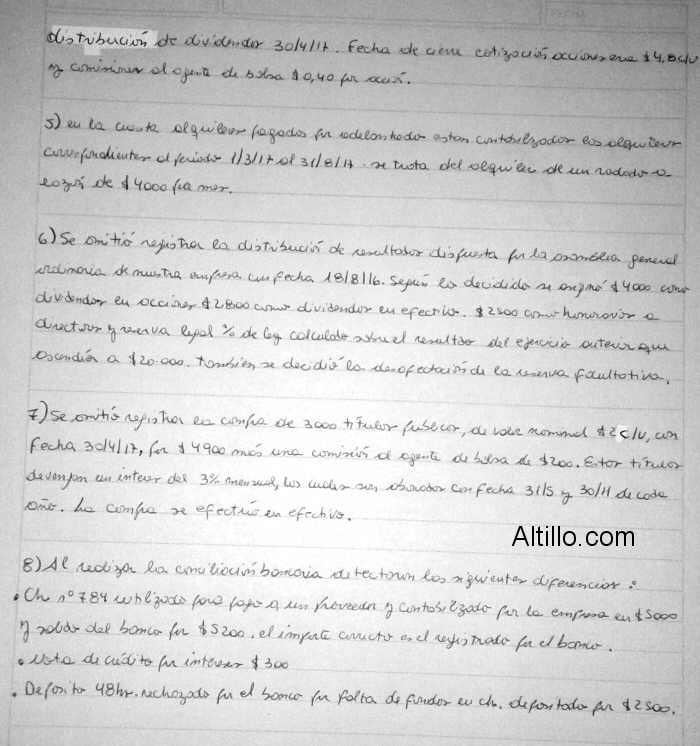 distribución de dividendos 30/4/17. Fecha de cierre cotización acciones era $4,8 c/u
y comisiones al agente de bolsa $0,40 por acción.
5) en la cuenta alquileres pagados por adelantado estan contabilizados los alquileres
correspondientes al periodo 1/3/17 al 31/8/17. se trata del alquiler de un rodado a
razón de $4000 por mes.
6) Se omitió registrar la distribución de resultados dispuesta por la asamblea general
ordinaria de nuestra empresa con fecha 18/8/16. Según lo decidido se asignó $4000 como
dividendos en acciones $2800 como dividendos en efectivo. $2500 como honorarios a
directores y reserva legal % de ley calculado sobre el resultado del ejercicio anterior que
ascendía a $20.000. tambien se decidió la desafectación de la reserva facultativa.
7) Se omitió registrar la compra de 3000 títulos públicos, de valor nominal $2 c/u, con
fecha 30/4/17, por $4900 más una comisión al agente de bolsa de $200. Estos títulos
devengan un interes del 3% mensual, los cuales son abonados con fecha 31/5 y 30/11 de cada
año. La compra se efectuó en efectivo.
Altillo.com
8) Al realizar la conciliación bancaria detectaron las siguientes diferencias:
• Ch nº 784 utilizado para pago a un proveedor y contabilizado por la empresa en $5000
y salido del banco por $5200. el importe correcto es el registrado por el banco.
• Nota de crédito por intereses $300
• Deposito 48hr. rechazado por el banco por falta de fondos en ch. depositado por $2500.